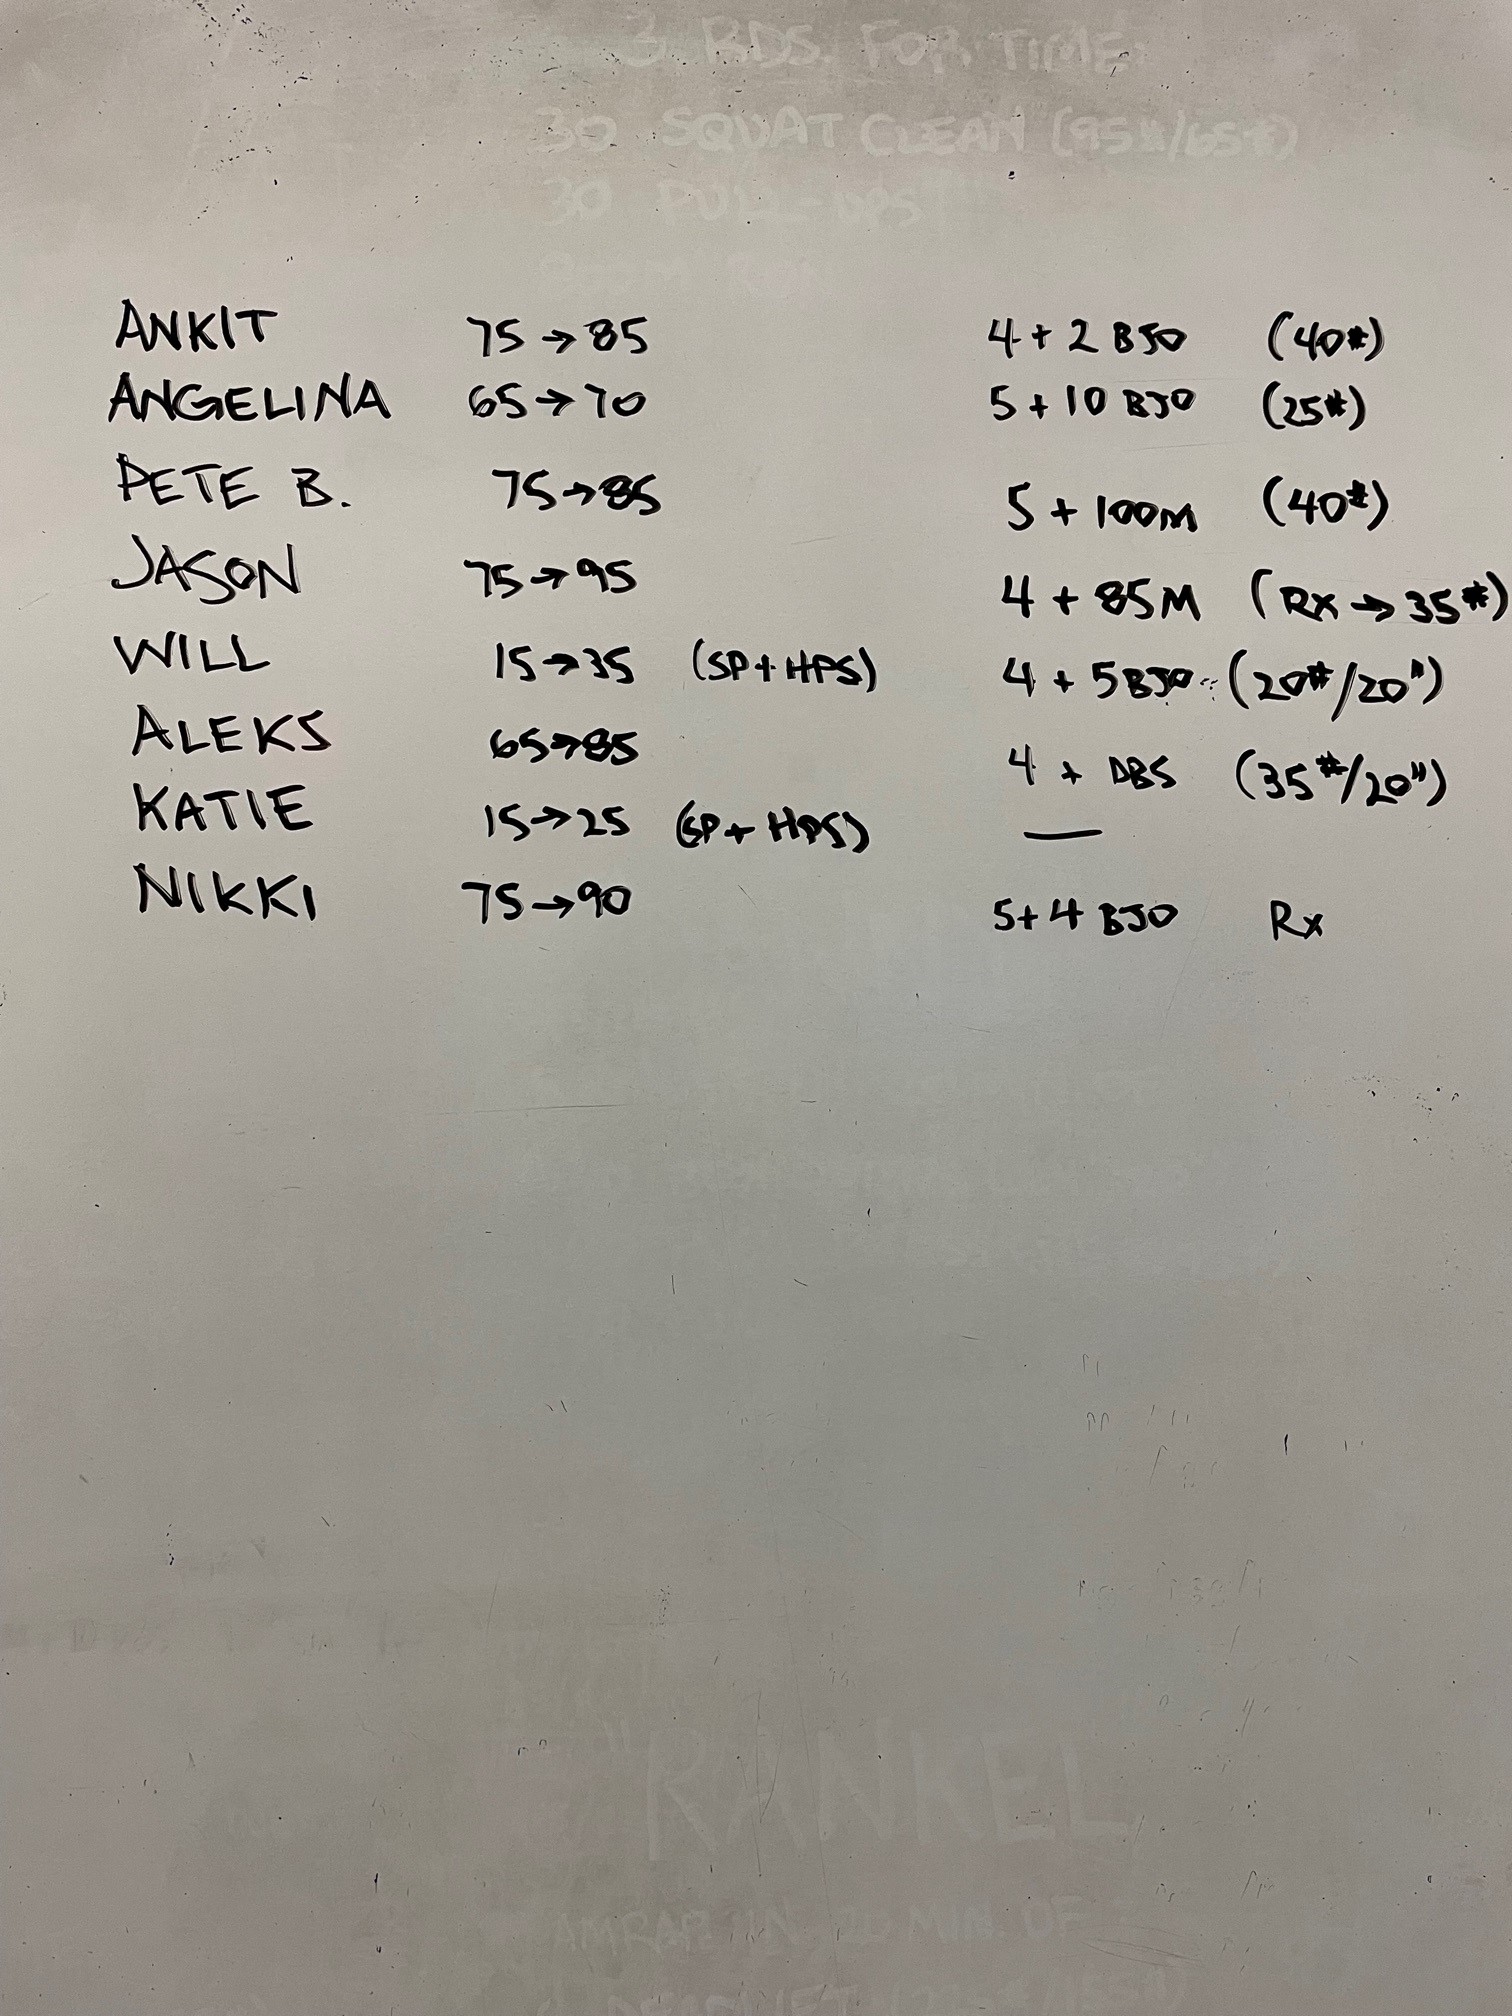 3 RDS. FOR TIME
30 SQUAT CLEAN (95#/65#)
30 PULL-UPS
ANKIT 75→85 4 + 2 BJO (40#)
ANGELINA 65→70 5 + 10 BJO (25#)
PETE B. 75→85 5 + 100M (40#)
JASON 75→95 4 + 85M (RX→35#)
WILL 15→35 (SP+HPS) 4 + 5 BJO (20#/20")
ALEKS 65→85 4 + DBS (35#/20")
KATIE 15→25 (SP+HPS) —
NIKKI 75→90 5+4 BJO Rx
"RANKEL
AMRAP IN 20 MIN. OF